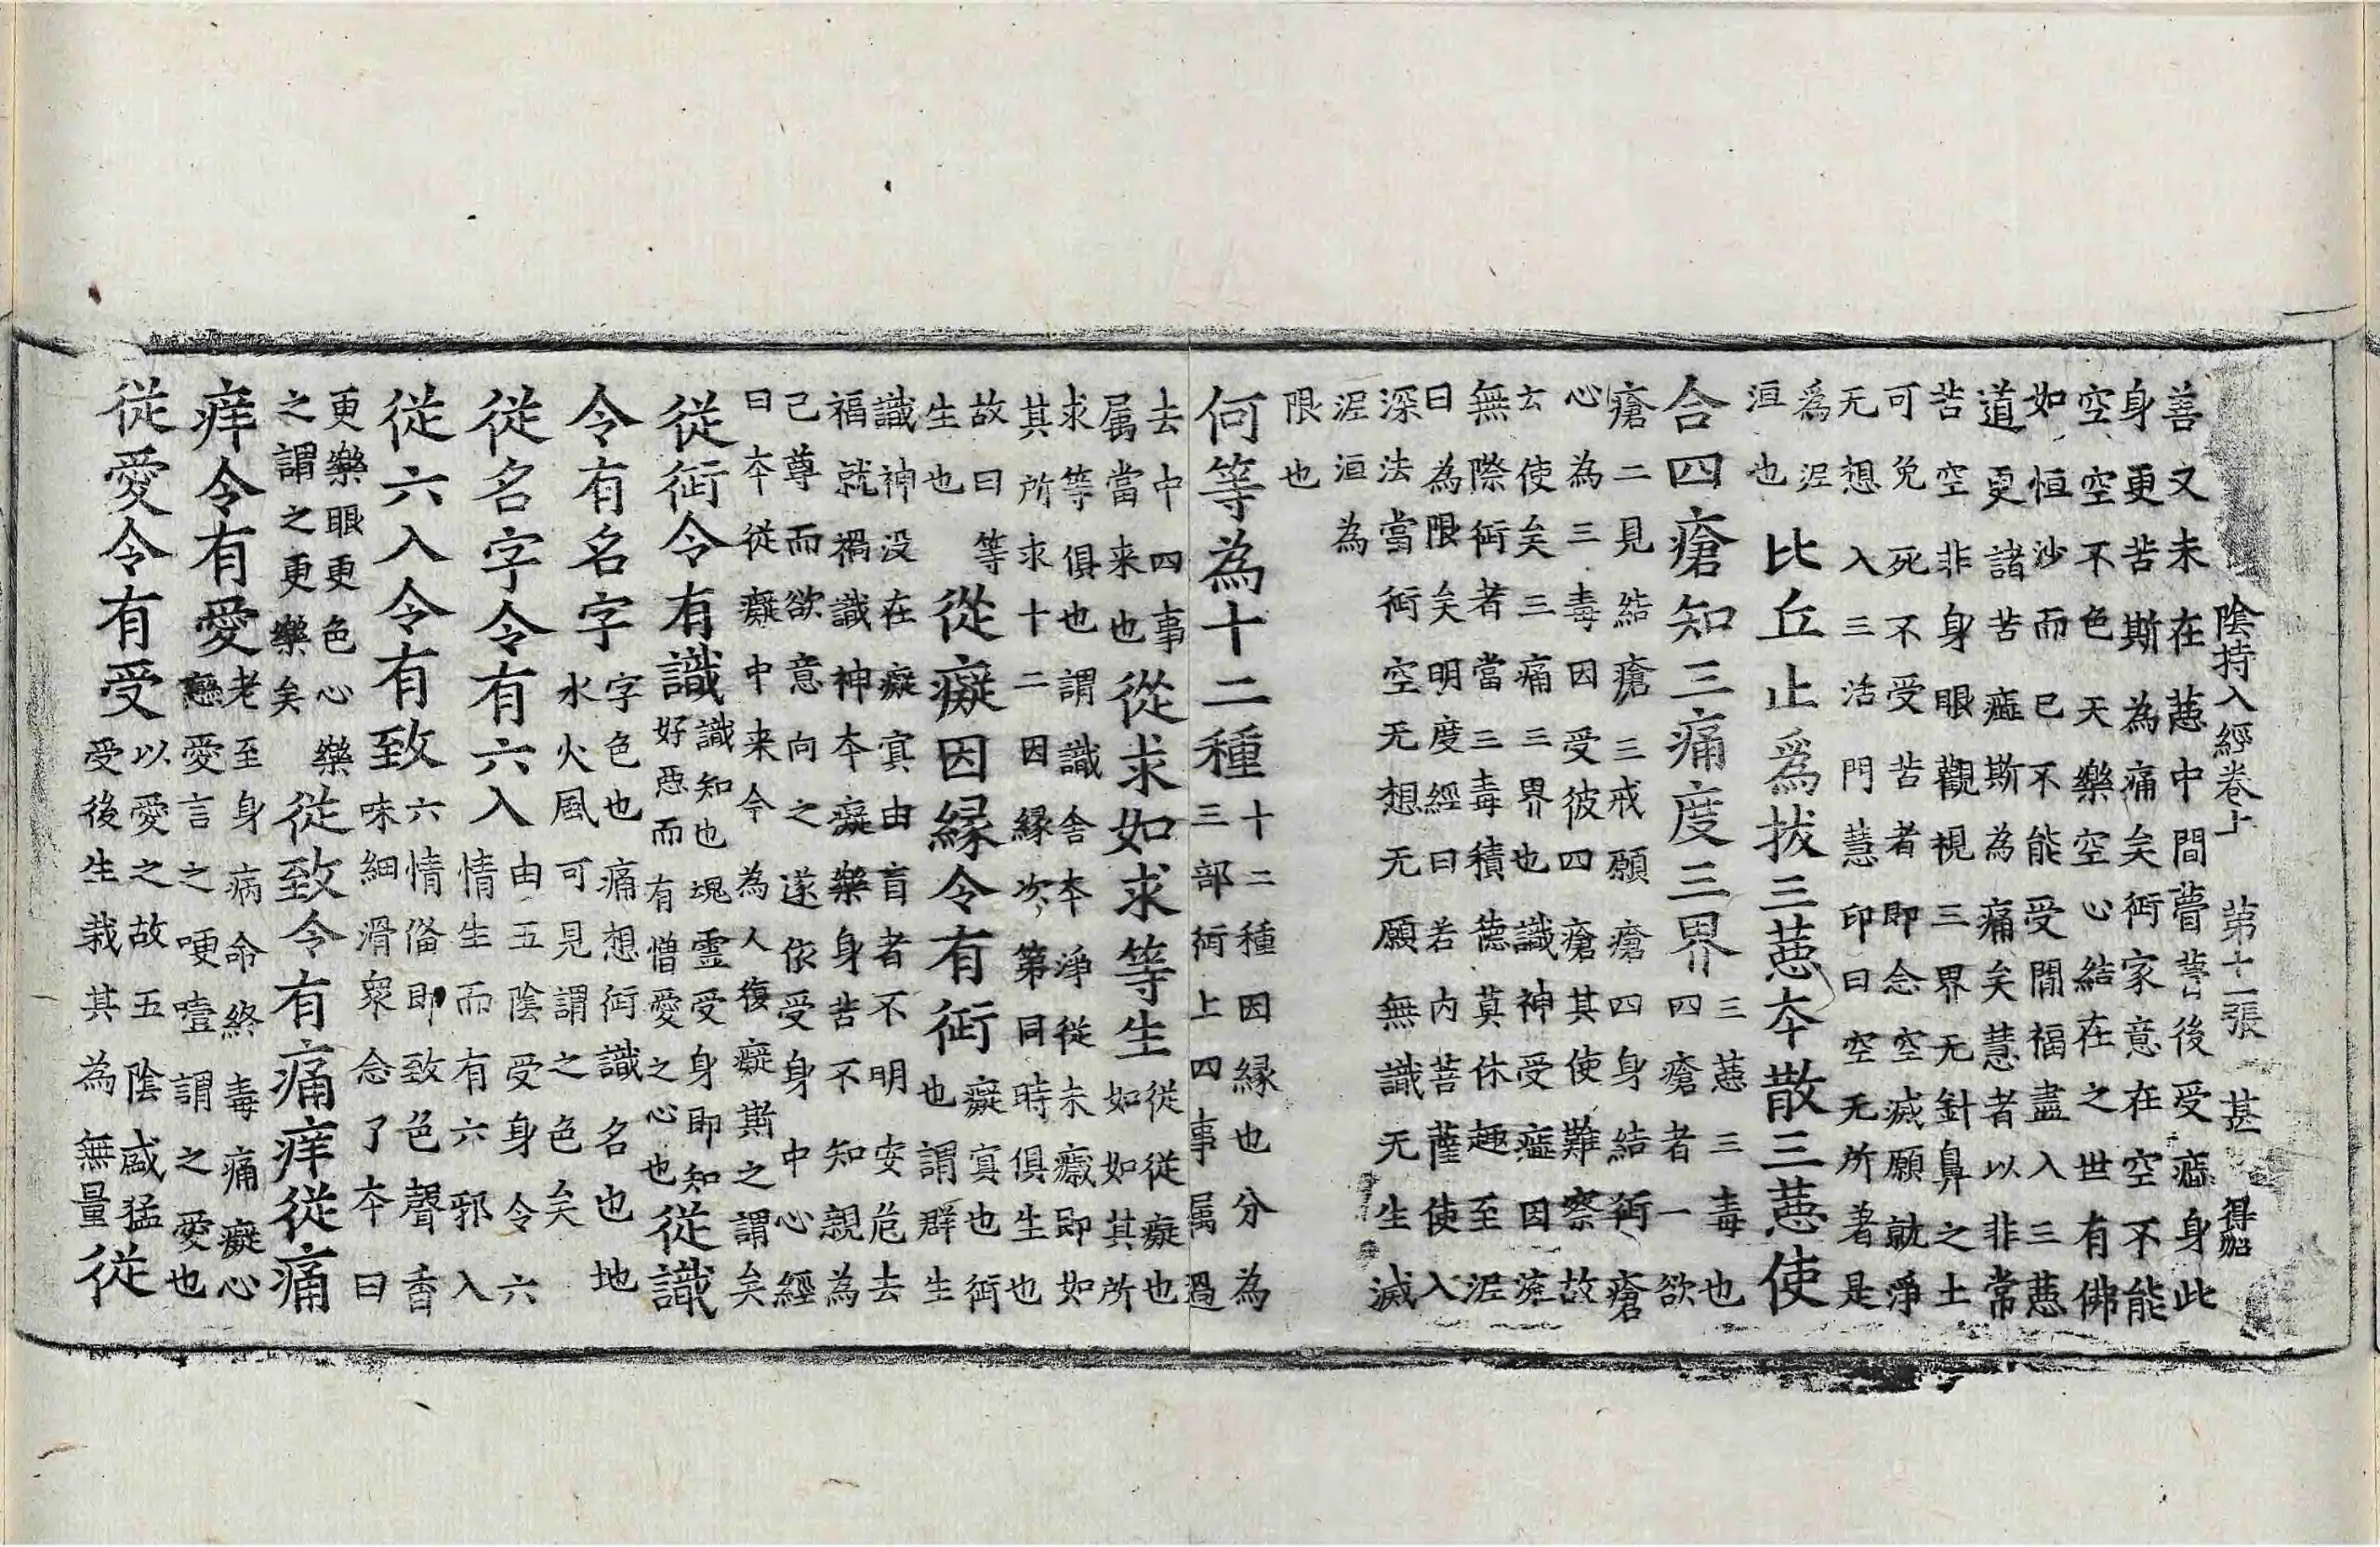 陰持入經卷上 第十一張 甚 得船
善又未在蒠中間瞢瞢後受痋身此
身更苦斯為痛矣行家意在空不能
空空不色天樂空心結在之世有佛
如恒沙而已不能受閒福盡入三蒠
道更諸苦痋斯為痛矣慧者以非常
苦空非身眼觀視三界无針鼻之土
可免死不受苦者即念空滅願就淨
无想入三活門慧印曰空无所著是
爲泥
洹也
比丘止爲拔三蒠夲散三蒠使
合四瘡知三痛度三界
三蒠三毒也
四瘡者一欲
瘡二見結瘡三戒願瘡四身結行瘡
心為三毒因受彼四瘡其使難察故
玄使矣三痛三界也識神受痋因㢈
無際行者當三毒積德莫休趣至泥
曰為限矣明度經曰若内菩薩使入
深法當行空无想无願無識无生滅
泥洹為
限也
何等為十二種
十二種因緣也分為
三部行上四事属過
去中四事
属當来也
從求如求等生
從從癡也
如如其所
求等俱也謂識舍夲淨從未癡即如
其所求十二因緣次第同時俱生也
故曰等
生也
從癡因緣令有行
癡冥也行
也謂群生
識神没在癡冥由盲者不明安危去
福就禍識神夲癡樂身苦不知親為
己尊而欲意向之遂依受身中心經
曰夲從癡中来今為人復癡斯之謂矣
從行令有識
識知也塊靈受身即知
好惡而有憎愛之心也
從識
令有名字
字色也痛想行識名也地
水火風可見謂之色矣
從名字令有六入
由五陰受身令六
情生而有六邪入
從六入令有致
六情俻即致色聲香
味細滑衆念了夲曰
更樂眼更色心樂
之謂之更樂矣
從致令有痛痒從痛
痒令有愛
老至身病命終毒痛癡心
戀愛言之哽噎謂之愛也
從愛令有受
以愛之故五陰盛猛
受後生栽其為無量
從